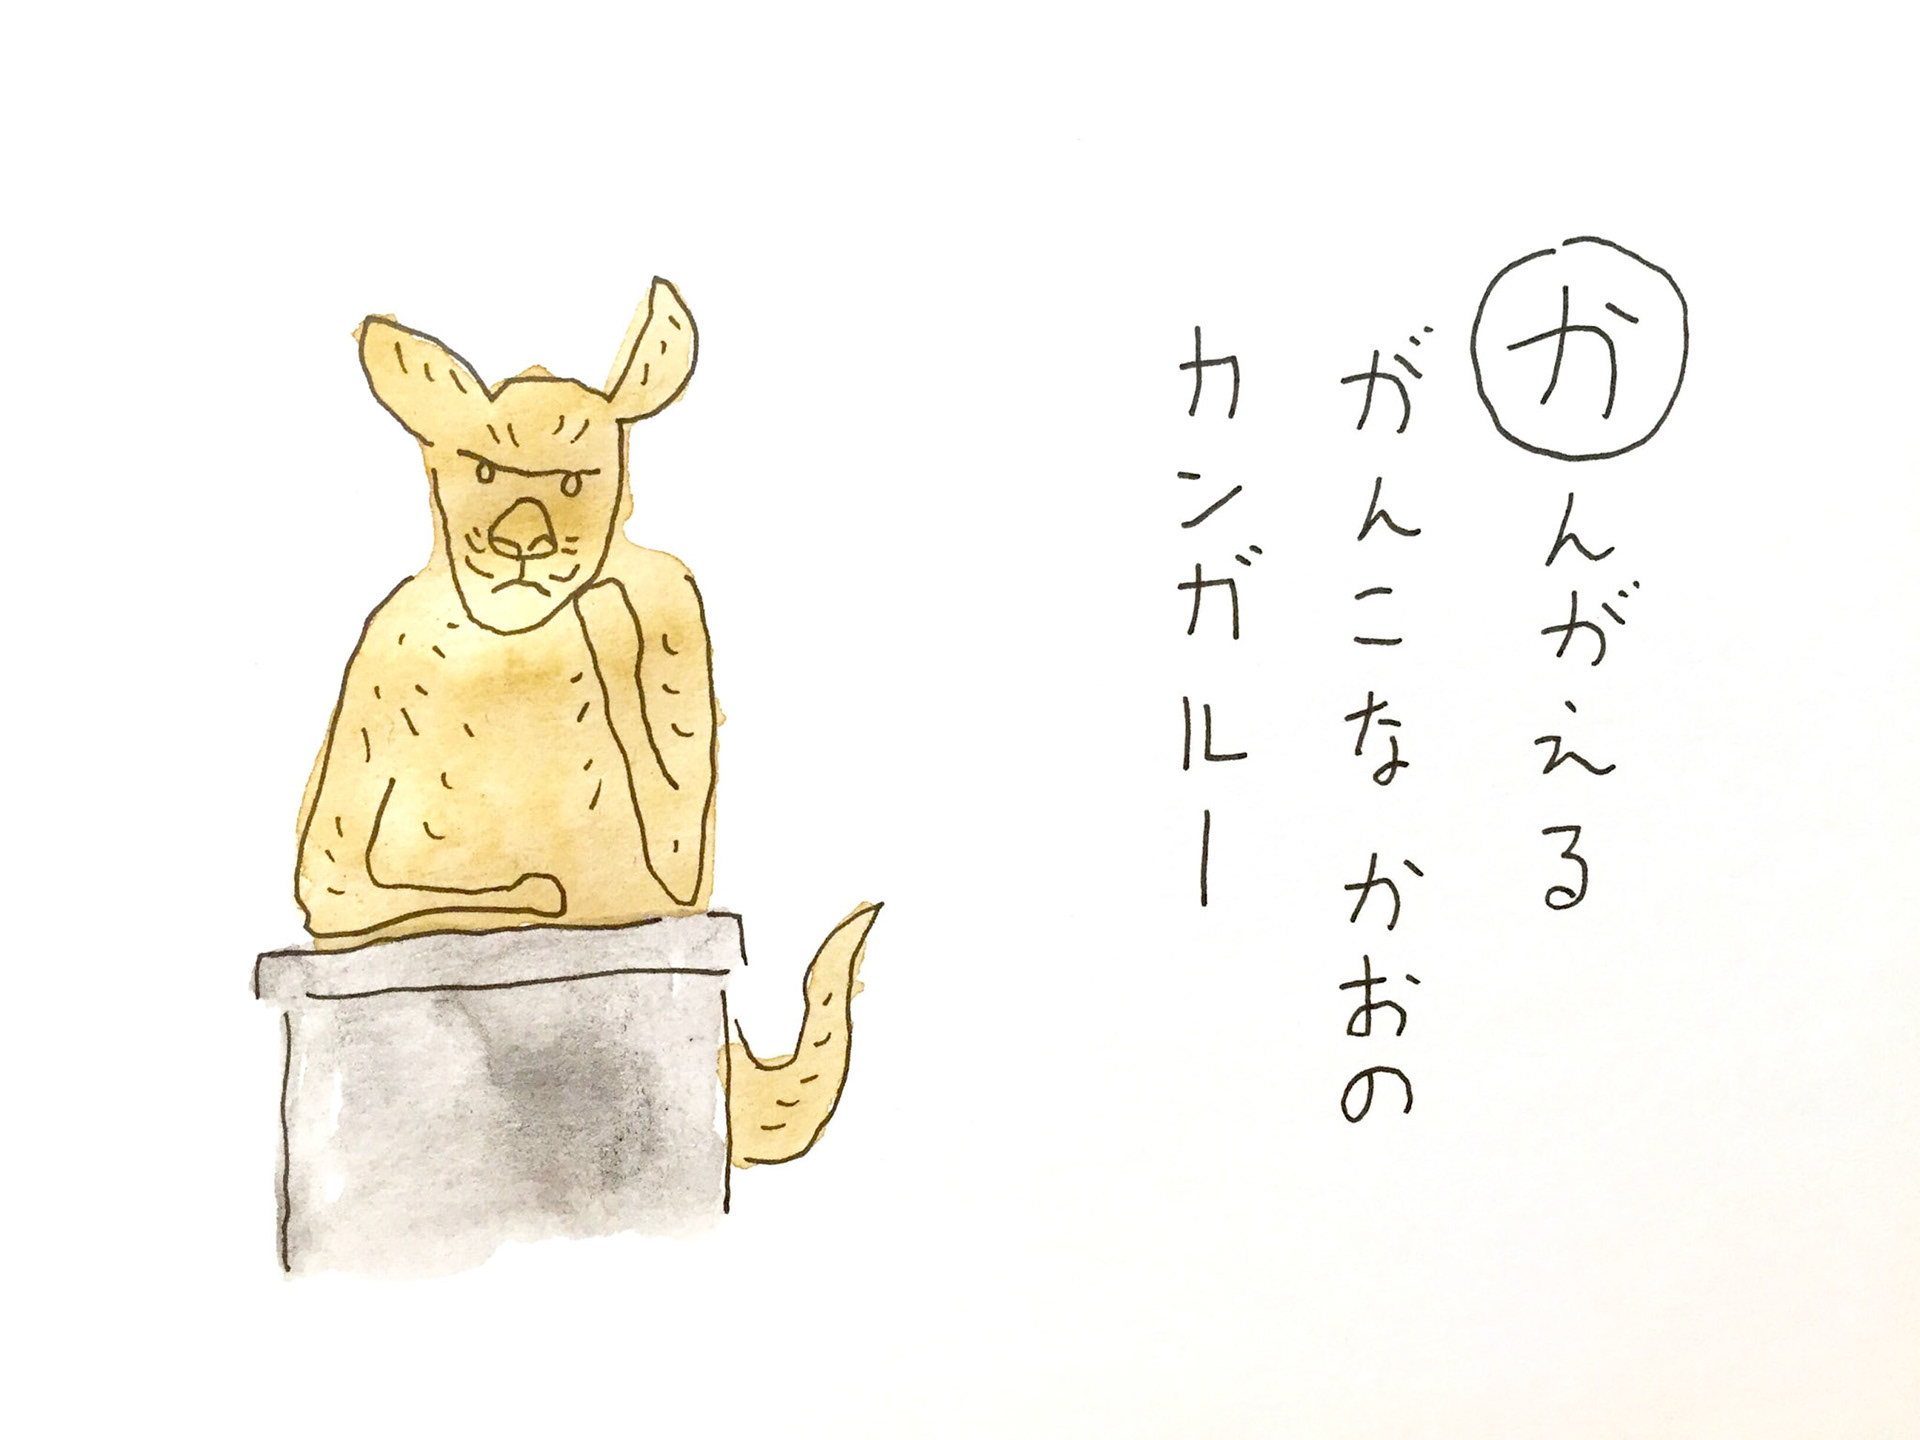 かんがえる
がんこな かおの
カンガルー